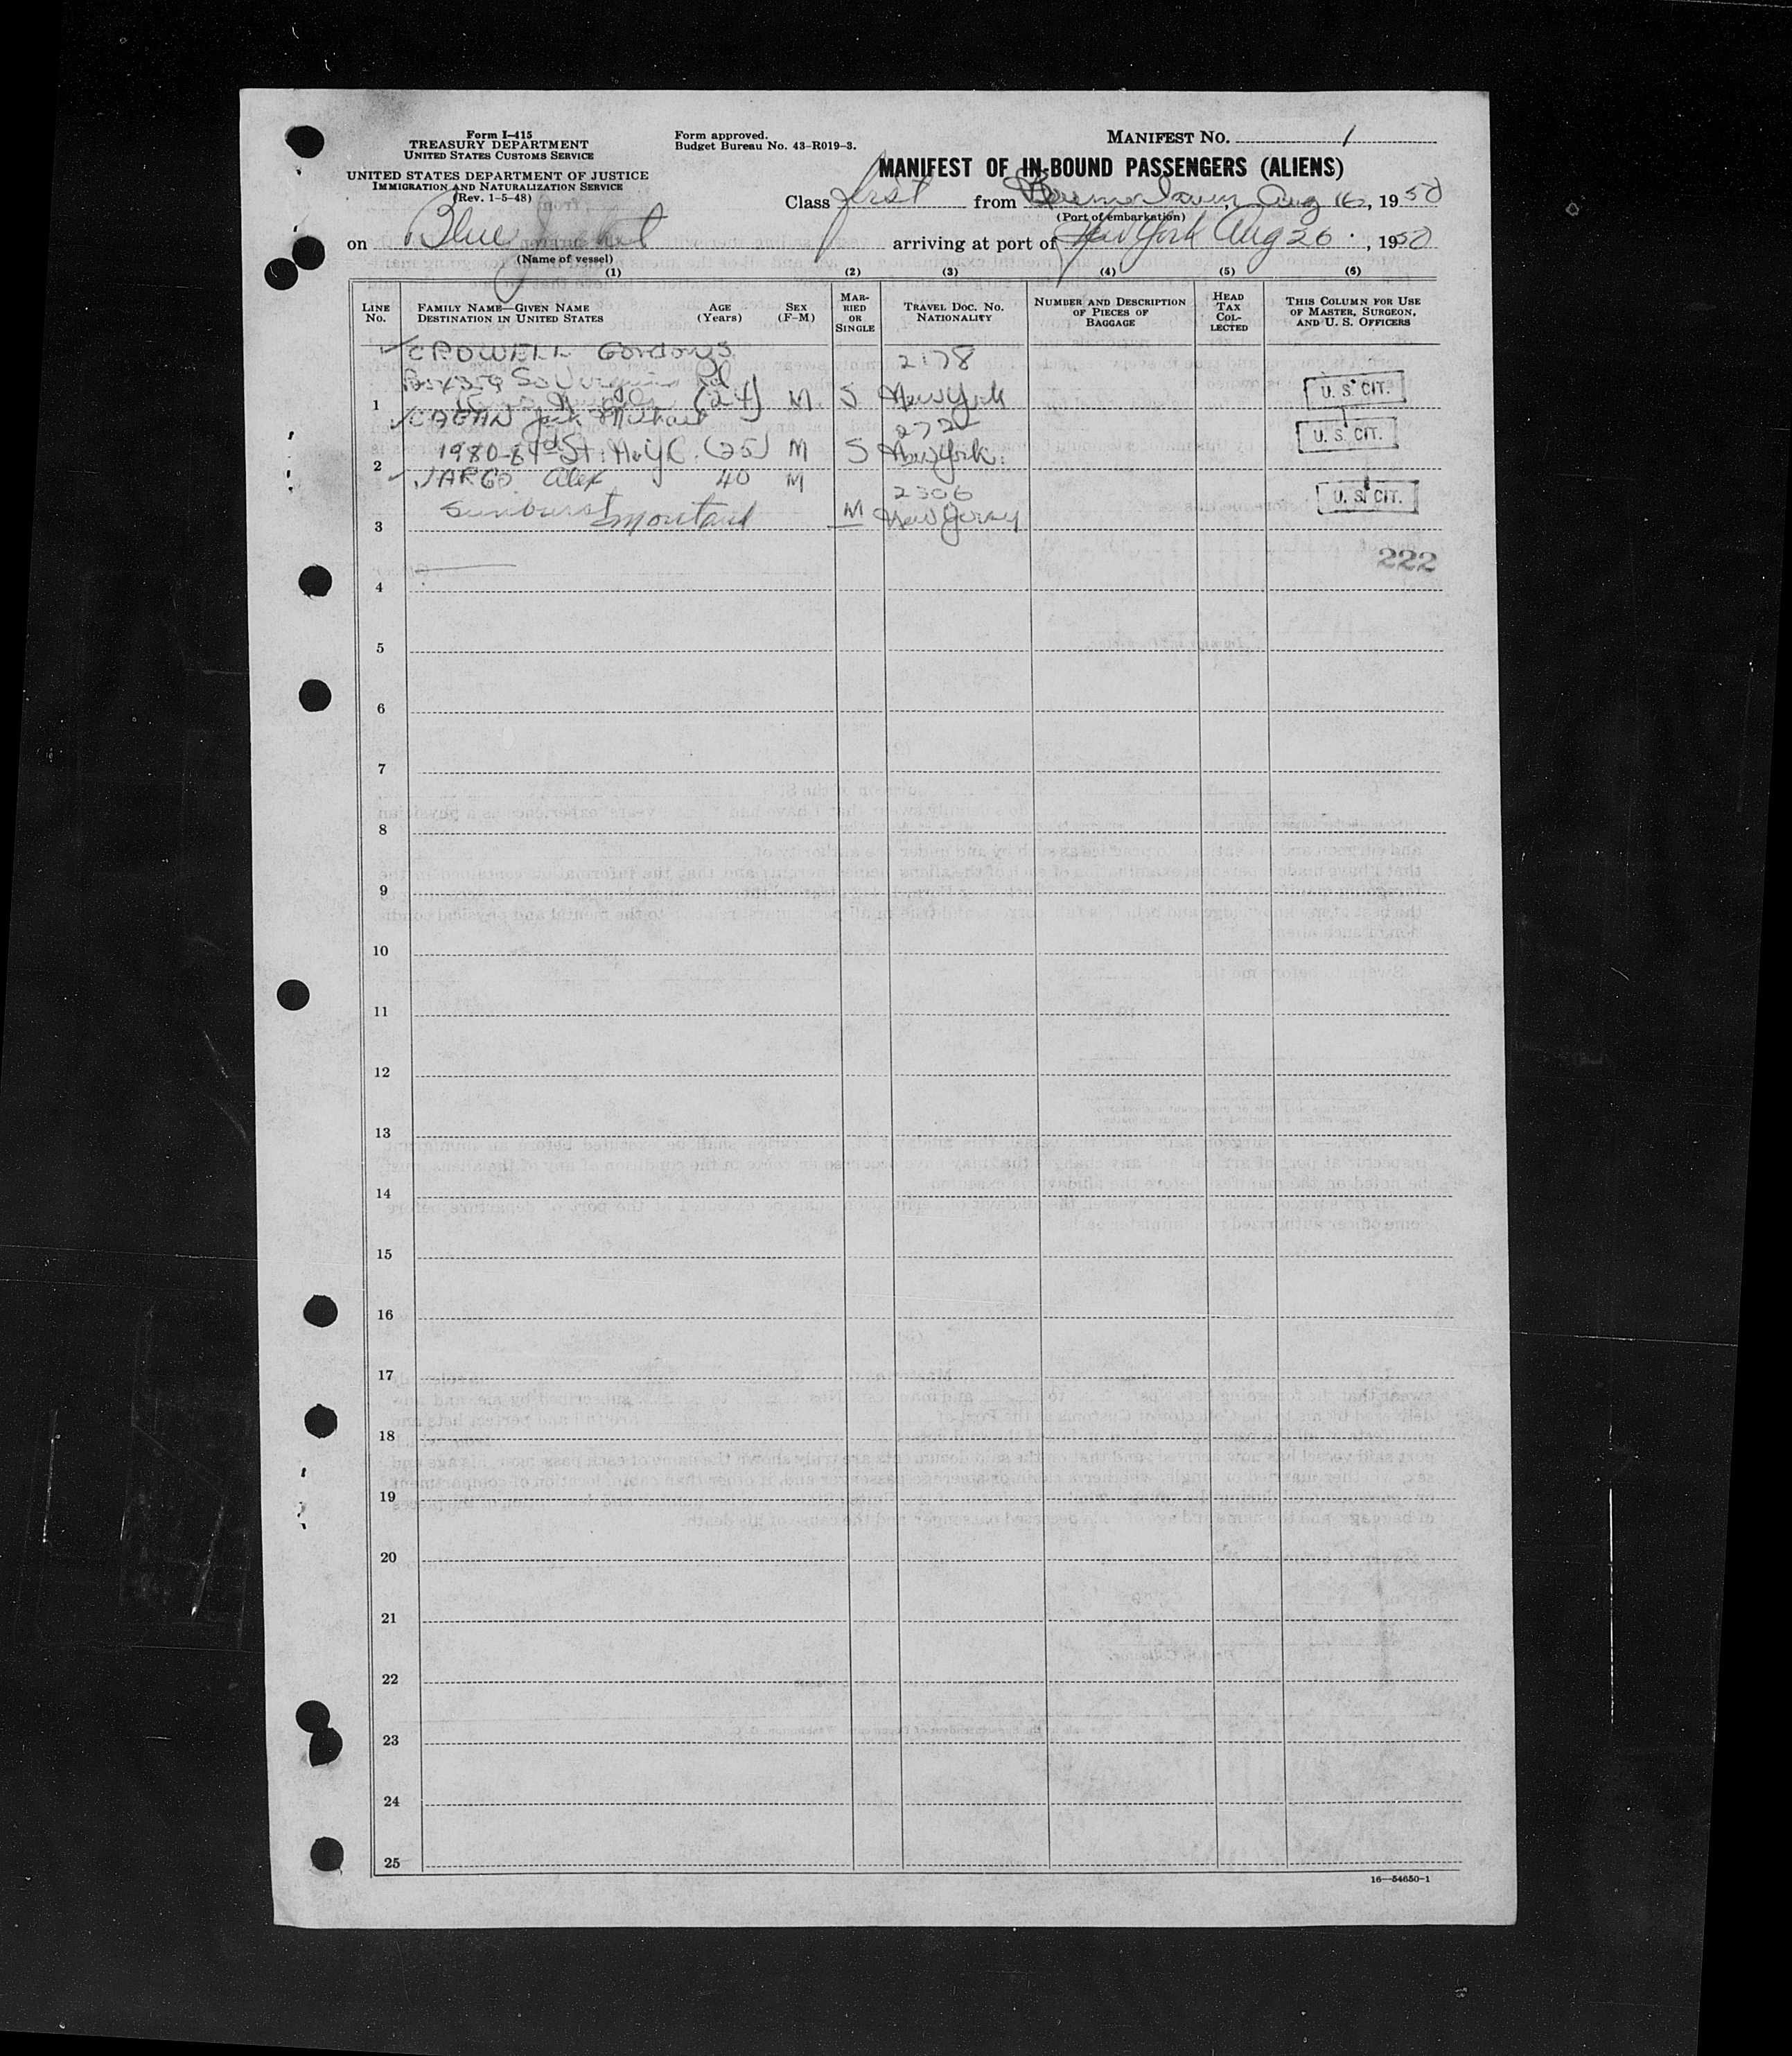 Form I-415
TREASURY DEPARTMENT
UNITED STATES CUSTOMS SERVICE
UNITED STATES DEPARTMENT OF JUSTICE
IMMIGRATION AND NATURALIZATION SERVICE
(Rev. 1-5-48)
Form approved.
Budget Bureau No. 43-R019-3.
MANIFEST NO. 1
MANIFEST OF IN-BOUND PASSENGERS (ALIENS)
Class first from Aug 16, 1950
(Port of embarkation)
on Blue arriving at port of New York Aug 26, 1950
(Name of vessel)
(1) (2) (3) (4) (5) (6)
LINE No. FAMILY NAME—GIVEN NAME DESTINATION IN UNITED STATES AGE (Years) SEX (F-M) MARRIED OR SINGLE TRAVEL DOC. NO. NATIONALITY NUMBER AND DESCRIPTION OF PIECES OF BAGGAGE HEAD TAX COLLECTED THIS COLUMN FOR USE OF MASTER, SURGEON, AND U. S. OFFICERS
CROWELL Gordon S. 2178
Box 359 So Rd
1 (24) M S New York U. S. CIT.
Jack Michael
2 1980 St. N.Y.C. (25) M S New York U. S. CIT.
JARGO Alex 40 M 2306
3 Sunburst Montana M New Jersey U. S. CIT.
222
4
5
6
7
8
9
10
11
12
13
14
15
16
17
18
19
20
21
22
23
24
25
16—54650-1